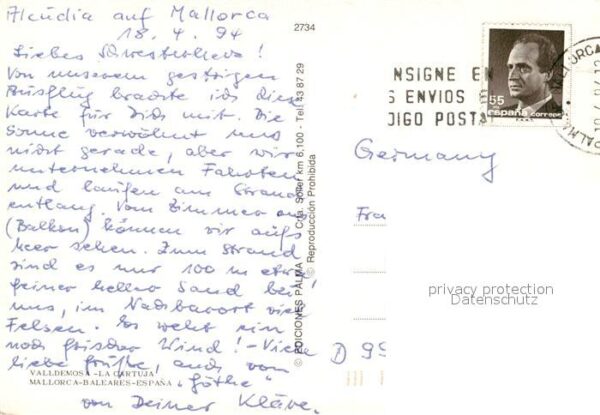 Alcúdia auf Mallorca
18. 4. 94
Liebes Schwesterherz!
Von unserem gestrigen
Ausflug brachte ich diese
Karte für Dich mit. Die
Sonne verwöhnt uns
nicht gerade, aber wir
unternehmen Fahrten
und laufen am Strand
entlang. Vom Zimmer aus
(Balkon) können wir aufs
Meer sehen. Zum Strand
sind es nur 100 m etwa
feiner heller Sand bei
uns, im Nachbarort viel
Felsen. Es weht ein
noch frischer Wind! - Viele
liebe Grüße, auch vom
VALLDEMOSA - LA CARTUJA
MALLORCA-BALEARES-ESPAÑA
"Göthe"
von Deiner Kläre.
2734
EDICIONES PALMA Ctra. Sóller km 6,100 - Tel: 43 87 29
© Reproducción Prohibida
NSIGNE EN
S ENVIOS E
DIGO POSTA
55
españa correos
MALLORCA
PALMA
Germany
Fra
D 99
privacy protection
Datenschutz